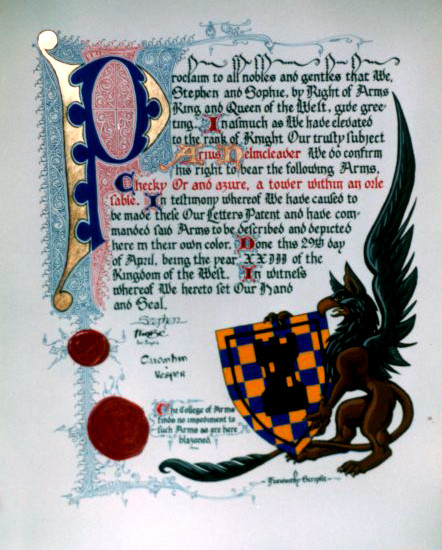 Proclaim to all nobles and gentles that We,
Stephen and Sophie, by Right of Arms
King and Queen of the West, give gree-
ting. Inasmuch as We have elevated
to the rank of Knight Our trusty subject
Arnus Helmcleaver We do confirm
his right to bear the following Arms,
Checky Or and azure, a tower within an orle
sable. In testimony whereof We have caused to
be made these Our Letters Patent and have com-
manded said Arms to be described and depicted
here in their own color. Done this 29th day
of April, being the year XXIII of the
Kingdom of the West. In witness
whereof We hereto set Our Hand
and Seal.
Stephen
Vesper
The College of Arms
finds no impediment to
such Arms as are here
blazoned.